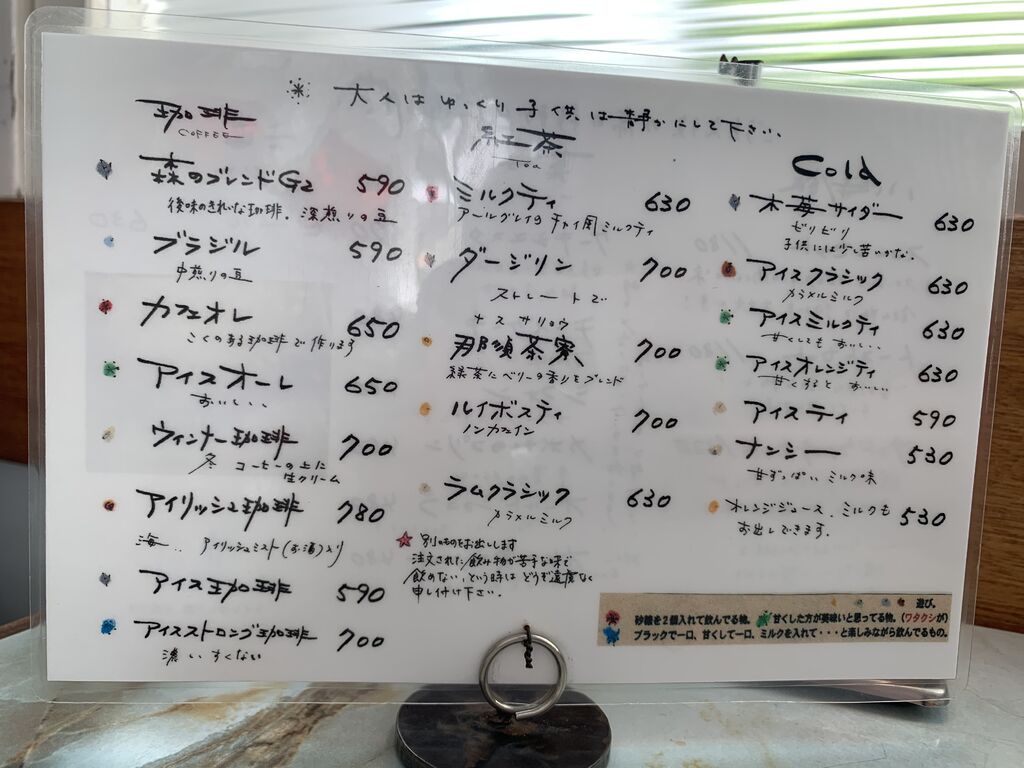 大人はゆっくり子供は静かにして下さい。
珈琲
COFFEE
森のブレンドG2 590
後味のきれいな珈琲。深煎りの豆
ブラジル 590
中煎りの豆
カフェオレ 650
こくのある珈琲で作ります
アイスオーレ 650
おいしい、、
ウィンナー珈琲 700
冬 コーヒーの上に
生クリーム
アイリッシュ珈琲 780
海.. アイリッシュミスト(お酒)入り
アイス珈琲 590
アイスストロング珈琲 700
濃い すくない
紅茶
Tea
ミルクティ 630
アールグレイのチャイ風ミルクティ
ダージリン 700
ストレートで
ナス サリョウ
那須茶寮 700
緑茶にベリーの香りをブレンド
ルイボスティ 700
ノンカフェイン
ラムクラシック 630
カラメルミルク
別のものをお出しします
注文された飲み物が苦手な味で
飲めない、という時は どうぞ遠慮なく
申し付け下さい。
Cold
木苺サイダー 630
ビリビリ
子供には少し苦いかな。
アイスクラシック 630
カラメルミルク
アイスミルクティ 630
甘くしても おいしい..
アイスオレンジティ 630
甘くすると おいしい
アイスティ 590
ナンシー 530
甘ずっぱい ミルク味
オレンジジュース、ミルクも 530
お出しできます。
遊び。
砂糖を2個入れて飲んでる物。 甘くした方が美味いと思ってる物。(ワタクシが)
ブラックで一口、甘くして一口、ミルクを入れて・・・と楽しみながら飲んでるもの。